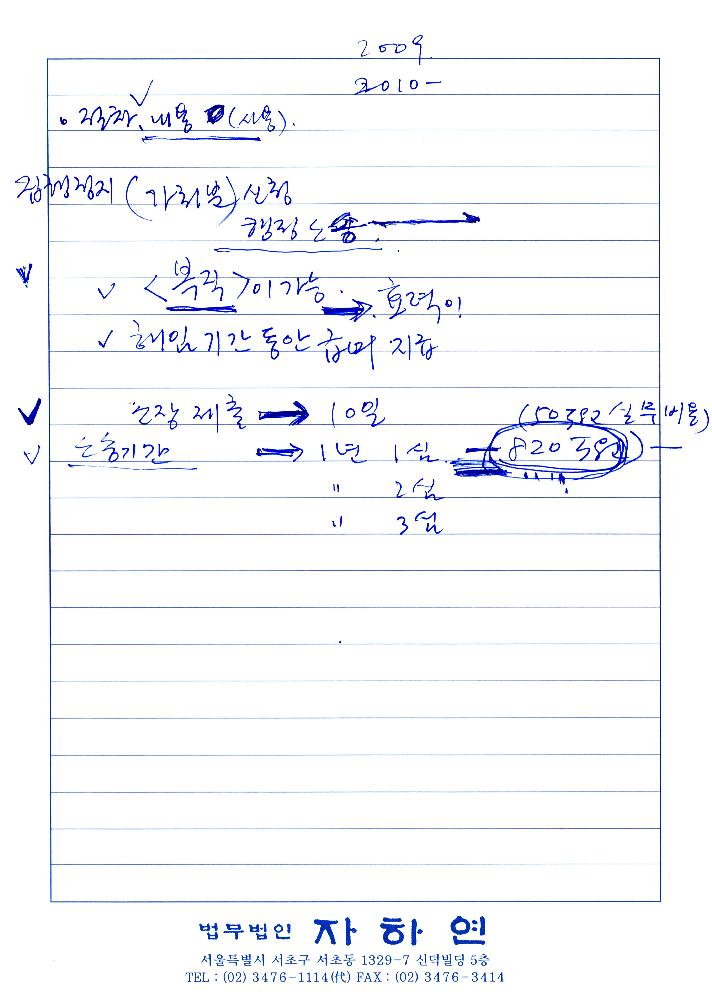 2009.
2010-
• 절차, 내용 (비용).
집행정지 (가처분) 신청
행정소송.
<복직>이 가능. 효력이
해임기간 동안 급여 지급
소장 제출 → 10일 (50만원 실무비용)
소송기간 → 1년 1심 - 820만원) -
" 2심
" 3심
법무법인 자하연
서울특별시 서초구 서초동 1329-7 신덕빌딩 5층
TEL : (02) 3476-1114(代) FAX : (02) 3476-3414